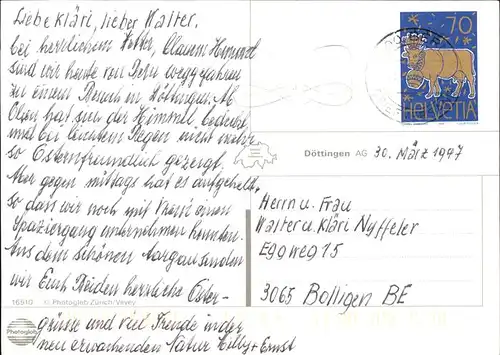 Liebe Kläri, lieber Walter,
bei herrlichem Wetter, blauem Himmel
sind wir heute von Bern weggefahren
zu einem Besuch in Döttingen. Ab
Olten hat sich der Himmel bedeckt
und bei leichtem Regen nicht mehr
so Osternfreundlich gezeigt.
Aber gegen mittags hat es aufgehellt,
so dass wir noch mit einen
Spaziergang unternehmen konnten.
Aus dem schönen Aargau senden
wir Euch Beiden herrliche Oster-
grüsse und viel Freude in der
neu erwachenden Natur Hilly + Ernst
16510 © Photoglob Zürich/Vevey
Photoglob
70
HELVETIA
Döttingen AG 30. März 1997
Herrn u. Frau
Walter u. Kläri Nyffeler
Eggweg 15
3065 Bolligen BE